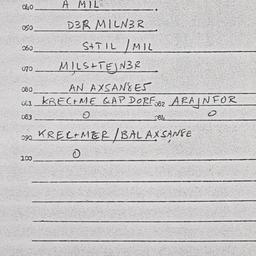 040 A MIL
050 D3R MILN3R
060 S+TIL /MIL
070 MILS+TEJN3R
080 AN AXSANSES
081 KREC+ME GAP DORF 082 ARAJNFOR
083 0 084 0
090 KREC+MER/BAL AXSANSE
100 0